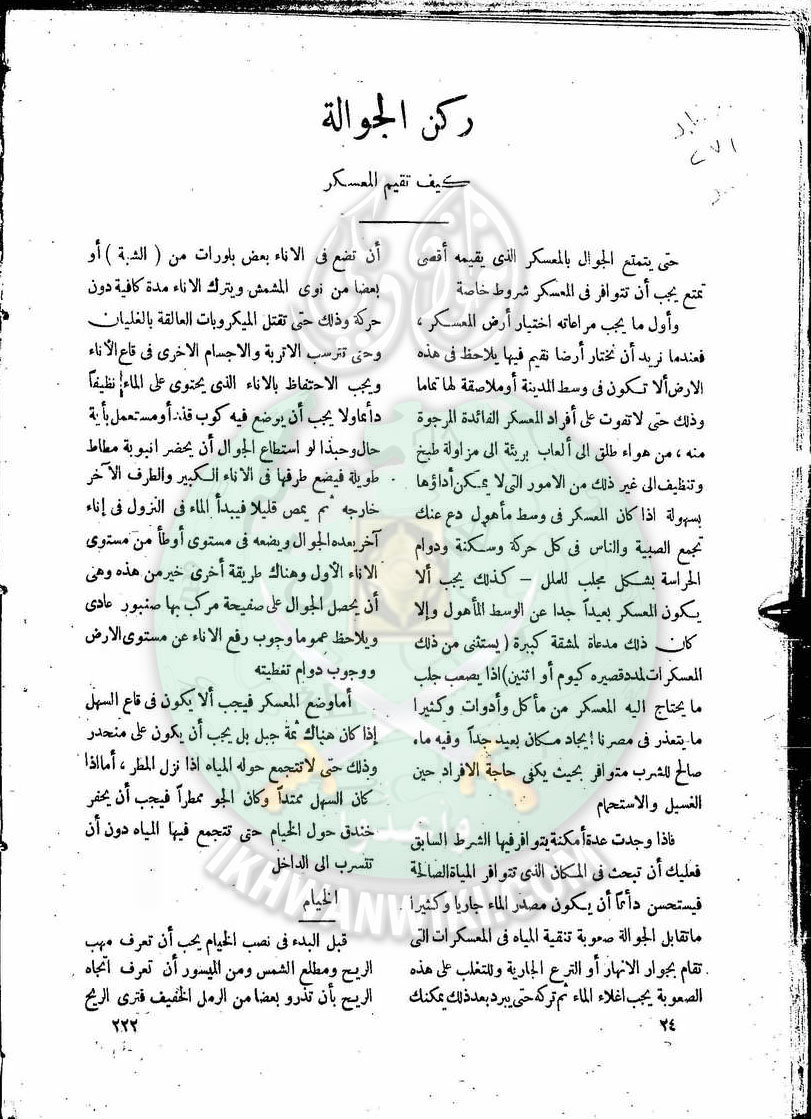 ركن الجوالة
كيف تقيم المعسكر
حتى يتمتع الجوال بالمعسكر الذى يقيمه أقصى
تمتع يجب أن تتوافر فى المعسكر شروط خاصة
وأول ما يجب مراعاته اختيار أرض المعسكر ،
فعندما نريد أن نختار أرضا نقيم فيها يلاحظ فى هذه
الارض ألا تكون فى وسط المدينة أو ملاصقة لها تماما
وذلك حتى لا تفوت على أفراد المعسكر الفائدة المرجوة
منه ، من هواء طلق الى ألعاب بريئة الى مزاولة طبخ
وتنظيف الى غير ذلك من الامور التى لا يمكن أداؤها
بسهولة اذا كان المعسكر فى وسط مأهول دع عنك
تجمع الصبية والناس فى كل حركة وسكنة ودوام
الحراسة بشكل مجلب للملل – كذلك يجب ألا
يكون المعسكر بعيداً جدا عن الوسط المأهول وإلا
كان ذلك مدعاة لمشقة كبيرة ( يستثنى من ذلك
المعسكرات لمدد قصيره كيوم أو اثنين ) اذا يصعب جلب
ما يحتاج اليه المعسكر من مأكل وأدوات وكثيرا
ما يتعذر فى مصرنا إيجاد مكان بعيد جداً وفيه ماء
صالح للشرب متوافر بحيث يكفى حاجة الافراد حين
الغسيل والاستحمام
فاذا وجدت عدة أمكنة يتوافر فيها الشرط السابق
فعليك أن تبحث فى المكان الذى تتوافر المياة الصالحة
فيستحسن دأئماً أن يكون مصدر الماء جاريا وكثيرا
ما تقابل الجوالة صعوبة تنقية المياه فى المعسكرات التى
تقام بجوار الانهار أو الترع الجارية وللتغلب على هذه
الصعوبة يجب اغلاء الماء ثم تركه حتى يبرد بعد ذلك يمكنك
٢٤
أن تضع فى الاناء بعض بلورات من ( الشبة ) أو
بعضا من نوى المشمش ويترك الاناء مدة كافية دون
حركة وذلك حتى تقتل الميكروبات العالقة بالغليان
وحتى تترسب الاتربة والاجسام الاخرى فى قاع الأناء
ويجب الاحتفاظ بالاناء الذى يحتوى على الماء نظيفاً
دأئما ولا يجب أن يوضع فيه كوب قذر أو مستعمل بأية
حال وحبذا لو استطاع الجوال أن يحضر انبوبة مطاط
طويلة فيضع طرفها فى الاناء الكبير والطرف الآخر
خارجه ثم يمص قليلا فيبدأ الماء فى النزول فى إناء
آخر يعده الجوال ويضعه فى مستوى أوطأ من مستوى
الاناء الأول وهناك طريقة أخرى خير من هذه وهى
أن يحصل الجوال على صفيحة مركب بها صنبور عادى
ويلاحظ عموما وجوب رفع الاناء عن مستوى الارض
ووجوب دوام تغطيته
أما وضع المعسكر فيجب ألا يكون فى قاع السهل
إذا كان هناك ثمة جبل بل يجب أن يكون على منحدر
وذلك حتى لا تتجمع حوله المياه اذا نزل المطر ، أما اذا
كان السهل ممتداً وكان الجو ممطراً فيجب أن يحفر
خندق حول الخيام حتى تتجمع فيها المياه دون أن
تتسرب الى الداخل
الخيام
قبل البدء فى نصب الخيام يجب أن تعرف مهب
الريح ومطلع الشمس ومن الميسور أن تعرف اتجاه
الريح بأن تذرو بعضا من الرمل الخفيف فترى الريح
٢٢٢
وأعدوا
IKHWANWIKI.COM